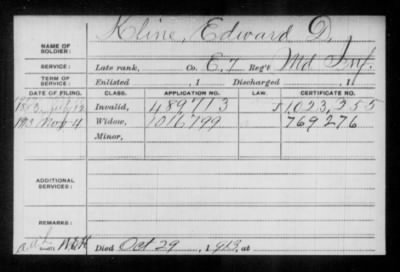 Kline, Edward D.
NAME OF SOLDIER:
SERVICE: Late rank, Co. E, 7 Reg't Md Inf.
TERM OF SERVICE: Enlisted , 1 Discharged , 1
DATE OF FILING. CLASS. APPLICATION NO. LAW. CERTIFICATE NO.
July 12 Invalid, 489713 S 1,023,255
1913 Nov 4 Widow, 1016799 769276
Minor,
ADDITIONAL SERVICES:
REMARKS:
Died Oct 29 , 1913, at